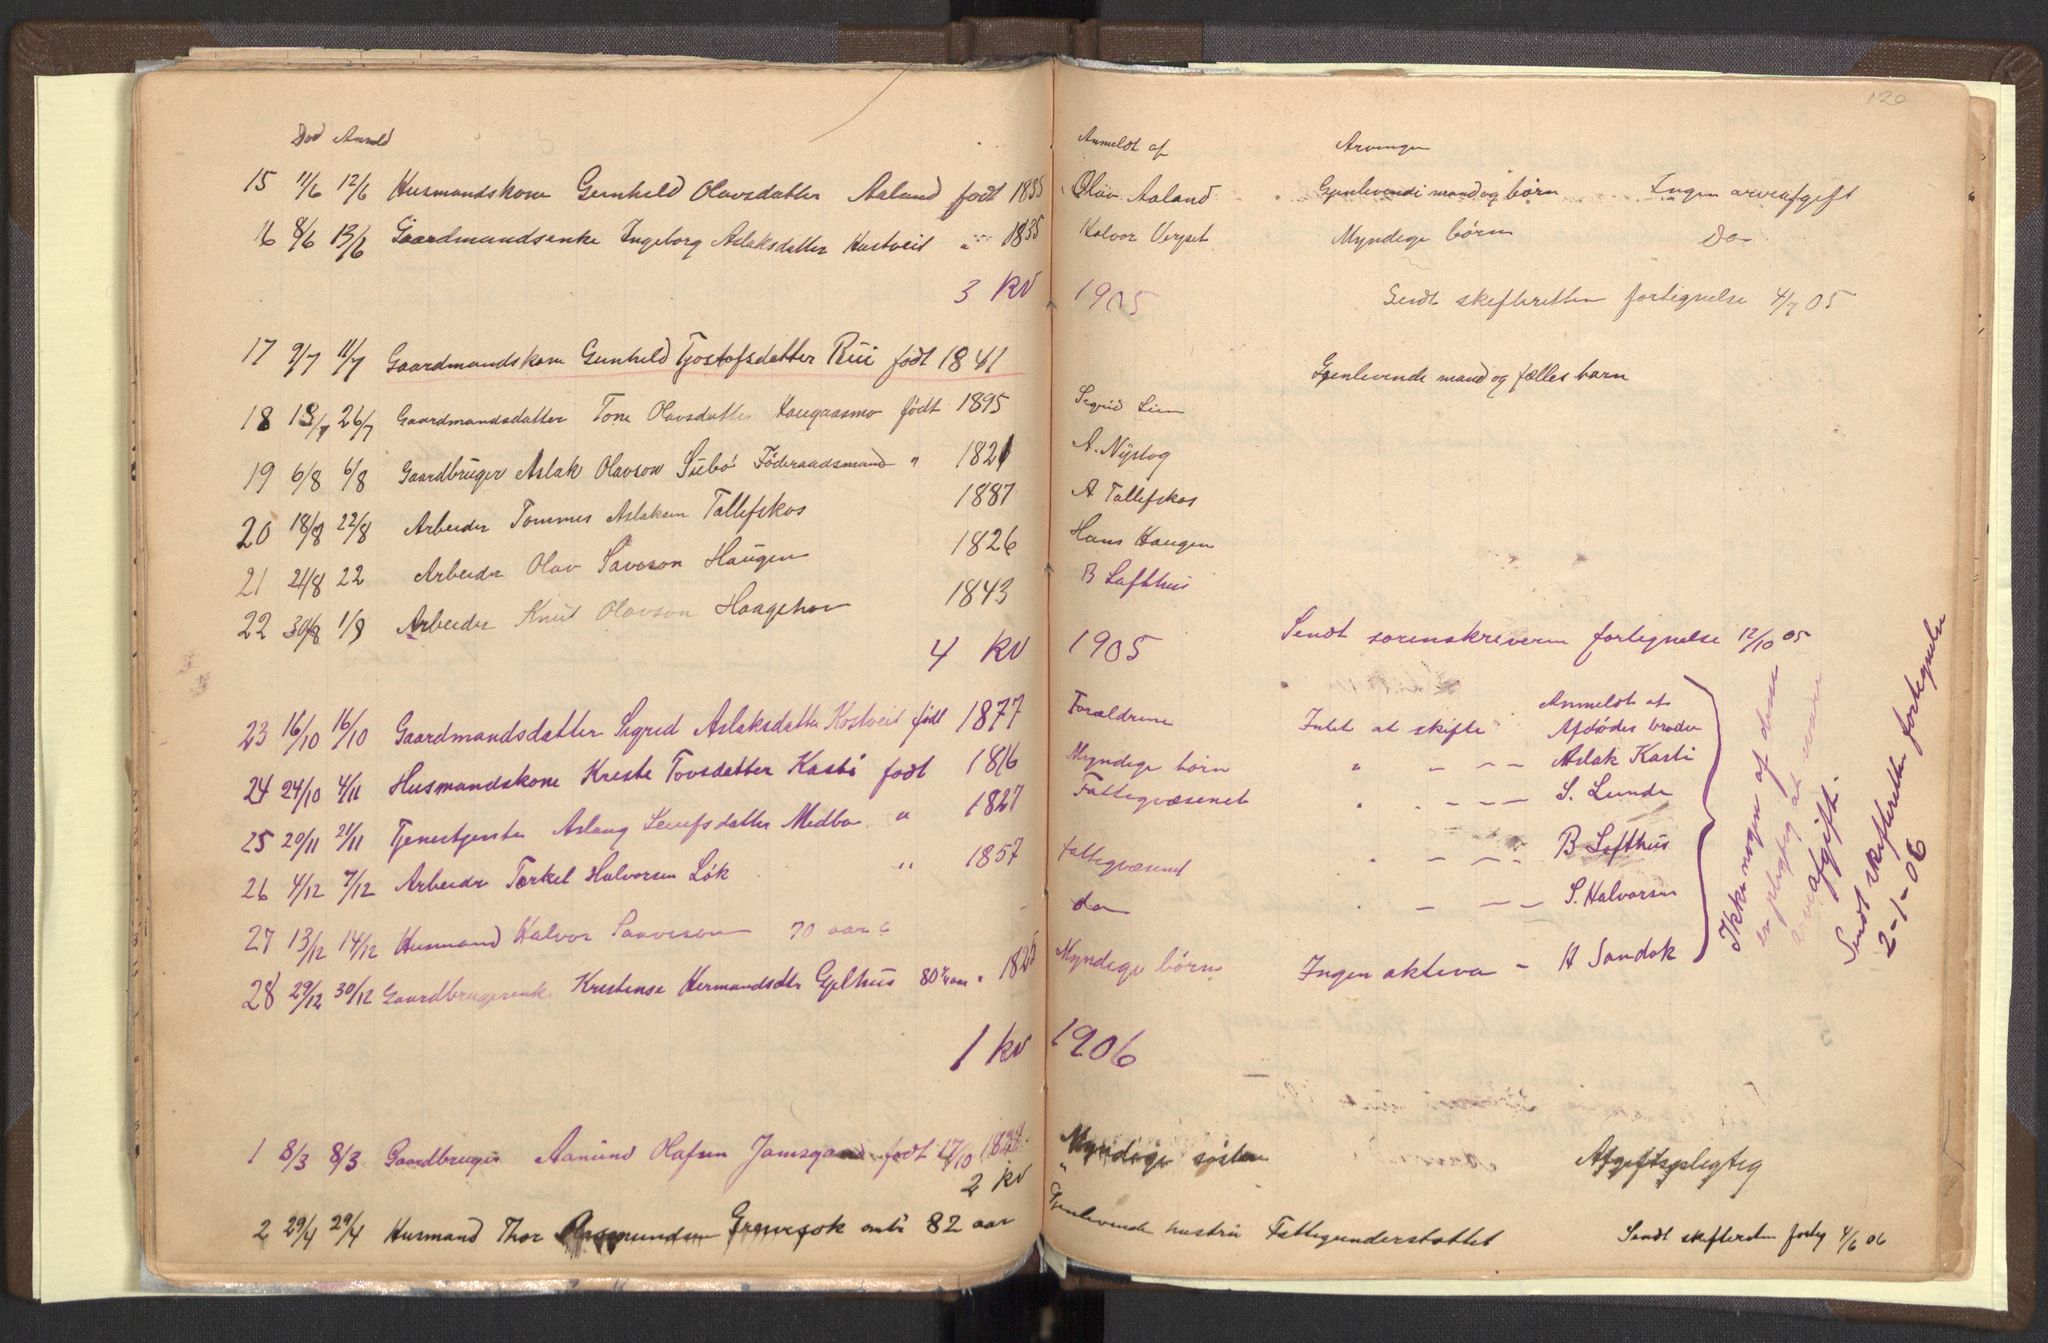 120
Død Anmeld Anmeldt af Arvinger
15 11/6 12/6 Husmandskone Gunhild Olavsdatter Aaland født 1835 Olav Aaland Gjenlevende mand og børn Ingen arveafgift
16 8/6 13/6 Gaardmandsenke Ingeborg Aslaksdatter Hustveit " 1835 Halvor Do
Myndige børn
3 kv 1905 Sendt skifteretten fortegnelse 4/7 05
17 9/7 11/7 Gaardmandskone Gunhild Tjostofsdatter Rui født 1841 Gjenlevende mand og fælles barn
18 13/7 26/7 Gaardmandsdatter Tone Olavsdatter Haugaasmo født 1895 Sigrid Lien
19 6/8 6/8 Gaardbruger Aslak Olavson Føderaadsmand " 1821 A. Nystog
20 18/8 22/8 Arbeider Tommes Aslaksen Tallefskos 1887 A Tallefskos
21 21/8 22 Arbeider Olav Saveson Haugen 1826 Hans Haugen
22 30/8 1/9 Arbeider Knut Olavson Haagehov 1843 B Lofthus
4 kv 1905 Sendt sorenskriveren fortegnelse 12/10 05
Anmeldt af
23 15/10 16/10 Gaardmandsdatter Sigrid Aslaksdatter Kostveit født 1877 Forældrene Intet at skifte Afdødes broder
24 24/10 4/11 Husmandskone Kreste Tovsdatter Kasti født 1816 Myndige børn " – – – Aslak Kasti
25 20/11 21/11 Tjenestjente Aslaug Medbø " 1827 Fattigvæsenet " – – – S. Lunde
26 4/12 7/12 Arbeider Torkel Halvorsen Løk " 1857 Fattigvæsenet " – – – B Lofthus
27 13/12 14/12 Husmand Halvor Saaveson 70 aar do " – – – S. Halvorsen
28 29/12 30/12 Gaardbrugerenke Kristense Hermandsdtr Gjelhus 80 aar " 1825 Myndige børn Ingen aktiva – H Sandok
Ikke nogen af disse
er pligtig at svare
arveafgift.
Sendt skifteretten fortegnelse
2-1-06
1 kv 1906
1 8/3 8/3 Gaardbruger Aamund Olafsen Jamsgaard født 17/10 Myndige søsken Afgiftspligtig
2 kv "
2 29/4 29/4 Husmand Thor Aasmundsen omtr 82 aar Gjenlevende hustru Fattigunderstøttet Sendt skifteretten forteg 4/6 06